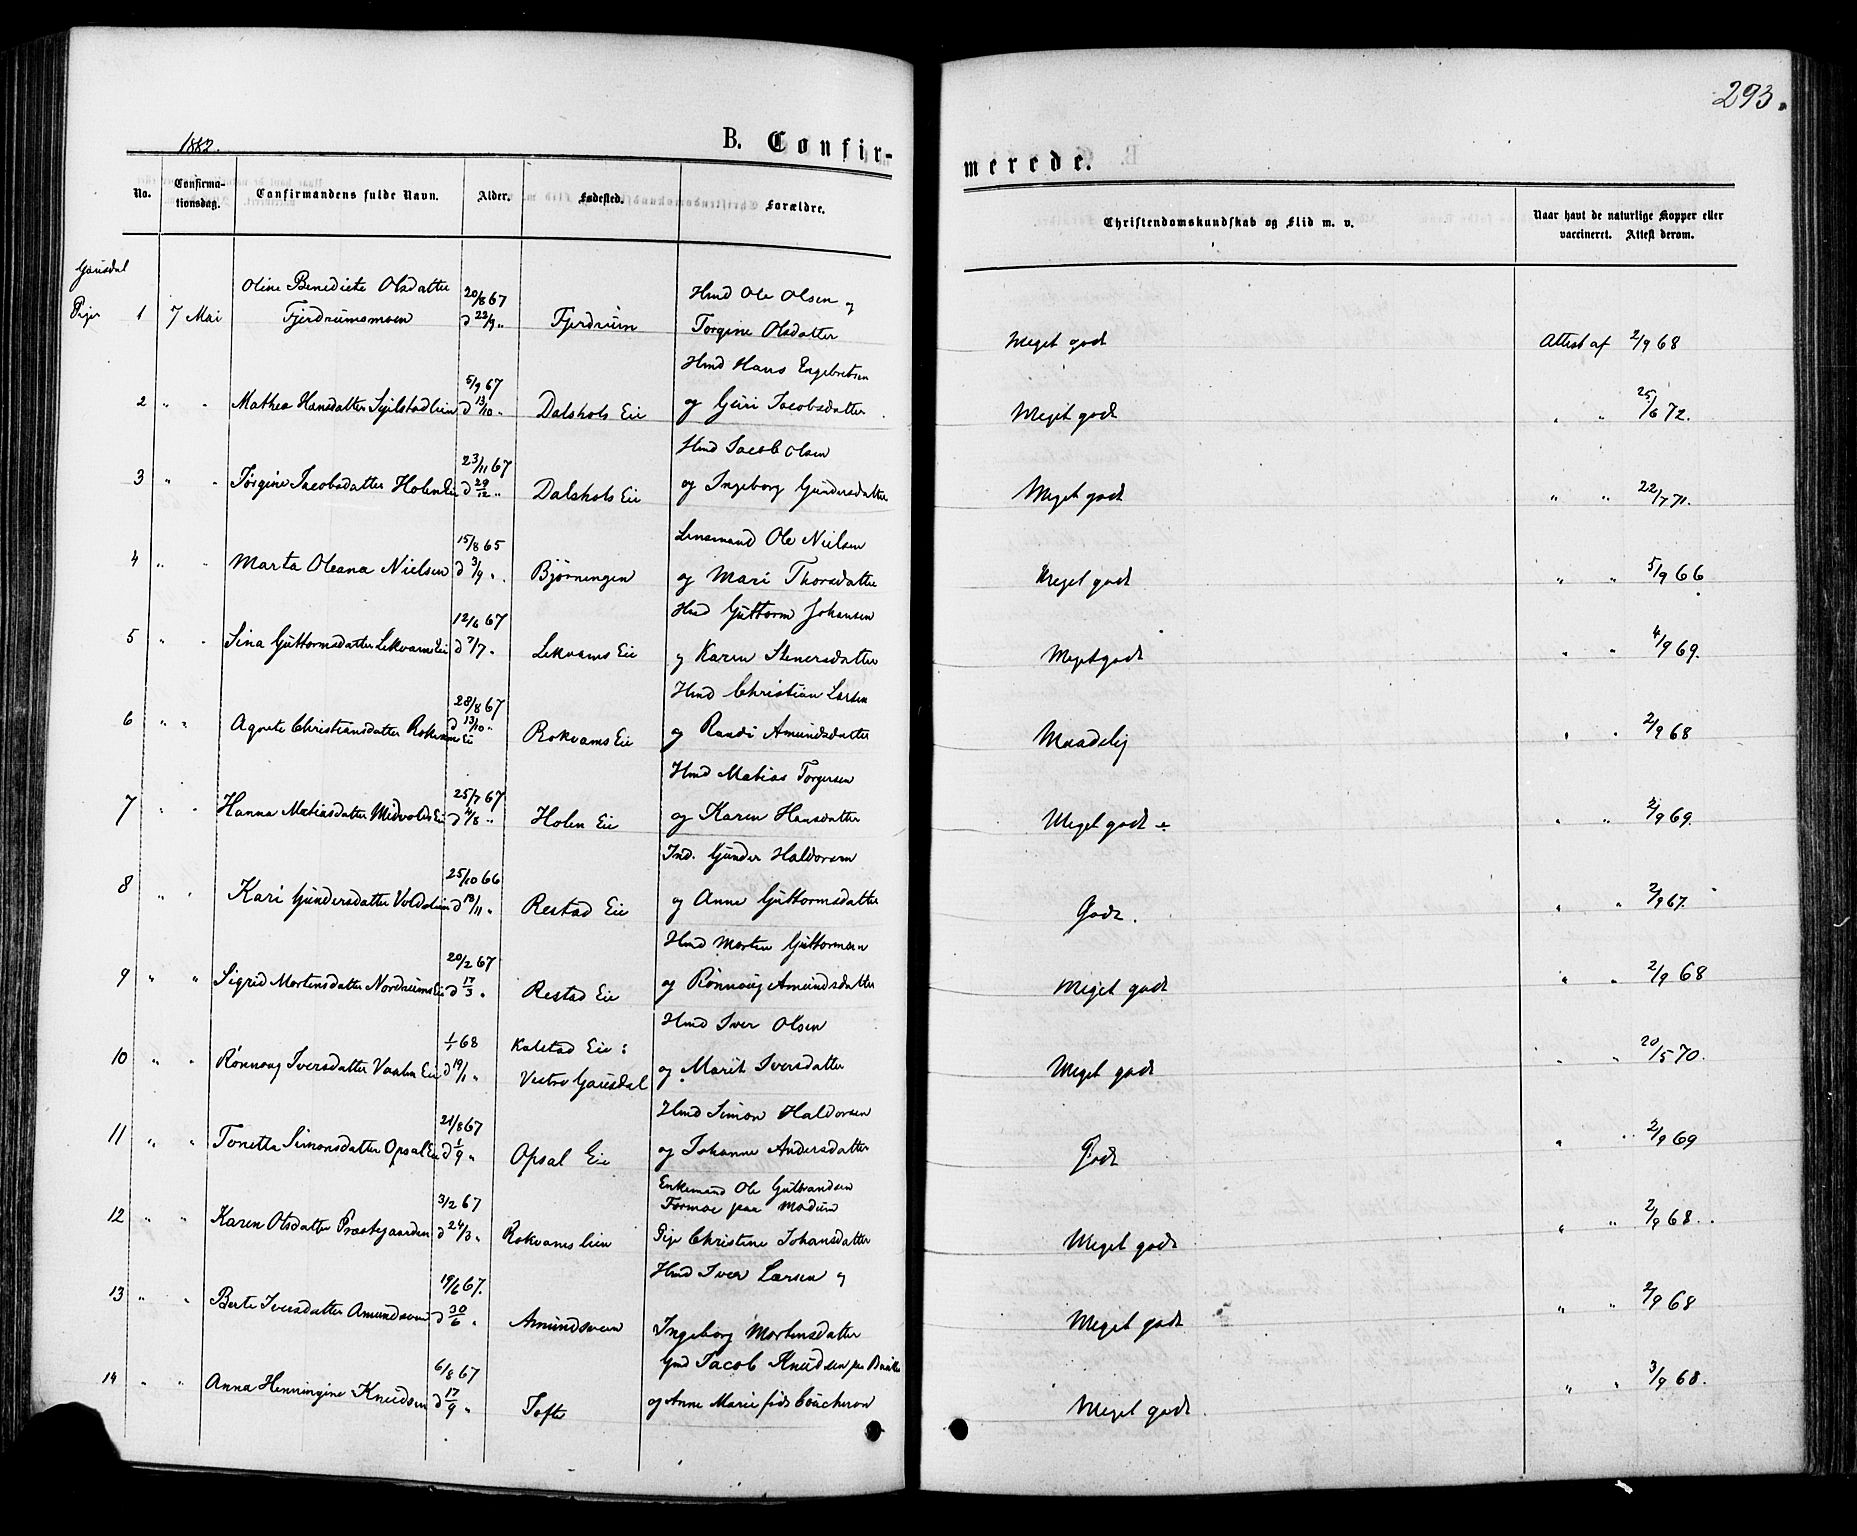 293.
1882.
B. Confir-
merede.
No. Confirma-tionsdag. Confirmandens fulde Navn. Alder. Fødested. Forældre. Christendomskundskab og Flid m. v. Naar havt de naturlige Kopper eller vaccineret. Attest derom.
Gausdal
Piger 1 7 Mai Oline Benedicte Olsdatter 20/8 67 Hmd Ole Olsen og
Fjerdrumsmoen d 22/9 " Fjerdrum Torgine Olsdatter Meget godt Attest af 2/9 68
5/9 67 Hmd Hans Engebretsen
2 " " Mathea Hansdatter d 13/10 " Dalsbots Eie og Guri Jacobsdatter Meget godt " " 25/6 72.
23/11 67 Hmd Jacob Olsen
3 " " Torgine Jacobsdatter Holen Eie d 29/12 " Dalsbots Eie og Ingeborg Gundersdatter Meget godt " " 22/7 71.
15/8 65 Lensmand Ole Nielsen
4 " " Marta Oleana Nielsen d 3/9 " Bjørningen og Mari Thorsdatter Meget godt " " 5/9 66
12/6 67 Hmd Guttorm Johansen
5 " " Sina Guttormsdatter Lekvams Eie d 7/7 " Lekvams Eie og Karen Stenersdatter Meget godt " " 4/9 69.
28/8 67 Hmd Christian Larsen
6 " " Agnete Christiansdatter Rokvam Eie d 13/10 " Rokvams Eie og Randi Amundsdatter Maadelig " " 2/9 68
25/7 67 Hmd Matias Torgersen
7 " " Hanna Matiasdatter Midvolds Eie d 4/8 " Holen Eie og Karen Hansdatter Meget godt ÷ " " 2/9 69.
25/10 66 Ind. Gunder Haldorsen
8 " " Kari Gundersdatter d 18/11 " Restad Eie og Anne Guttormsdatter Godt. " " 2/9 67.
20/2 67 Hmd Morten Guttormsen
9 " " Sigrid Mortensdatter Nordrums Eie d 17/3 " Restad Eie og Rønnoug Amundsdatter Meget godt " " 2/9 68
1/1 68 Kalstad Eie i Hmd Iver Olsen
10 " " Rønnoug Iversdatter Vaalen Eie d 19/1 " Vestre Gausdal og Marit Iversdatter Meget godt " " 20/5 70.
21/8 67 Hmd Simon Haldorsen
11 " " Tonetta Simonsdatter Opsal Eie d 1/9 " Opsal Eie og Johanne Andersdatter Godt " " 2/9 69
3/2 67 Enkemand Ole Gulbrandsen
Formoe paa Modum
12 " " Karen Olsdatter Præstegaarden d 24/3 " Rokvams lien Pige Christine Johansdatter Meget godt " " 2/9 68.
19/6 67. Hmd Iver Larsen og
13 " " Berte Iversdatter Amundsveen d 30/6 " Amundsveen Ingeborg Mortensdatter Meget godt " " 2/9 68
6/8 67 Gmd Jacob Knudsen paa
14 " " Anna Henningine Knudsen d 17/9 " Tofte og Anne Marie født Coucheron Meget godt. " " 3/9 68.